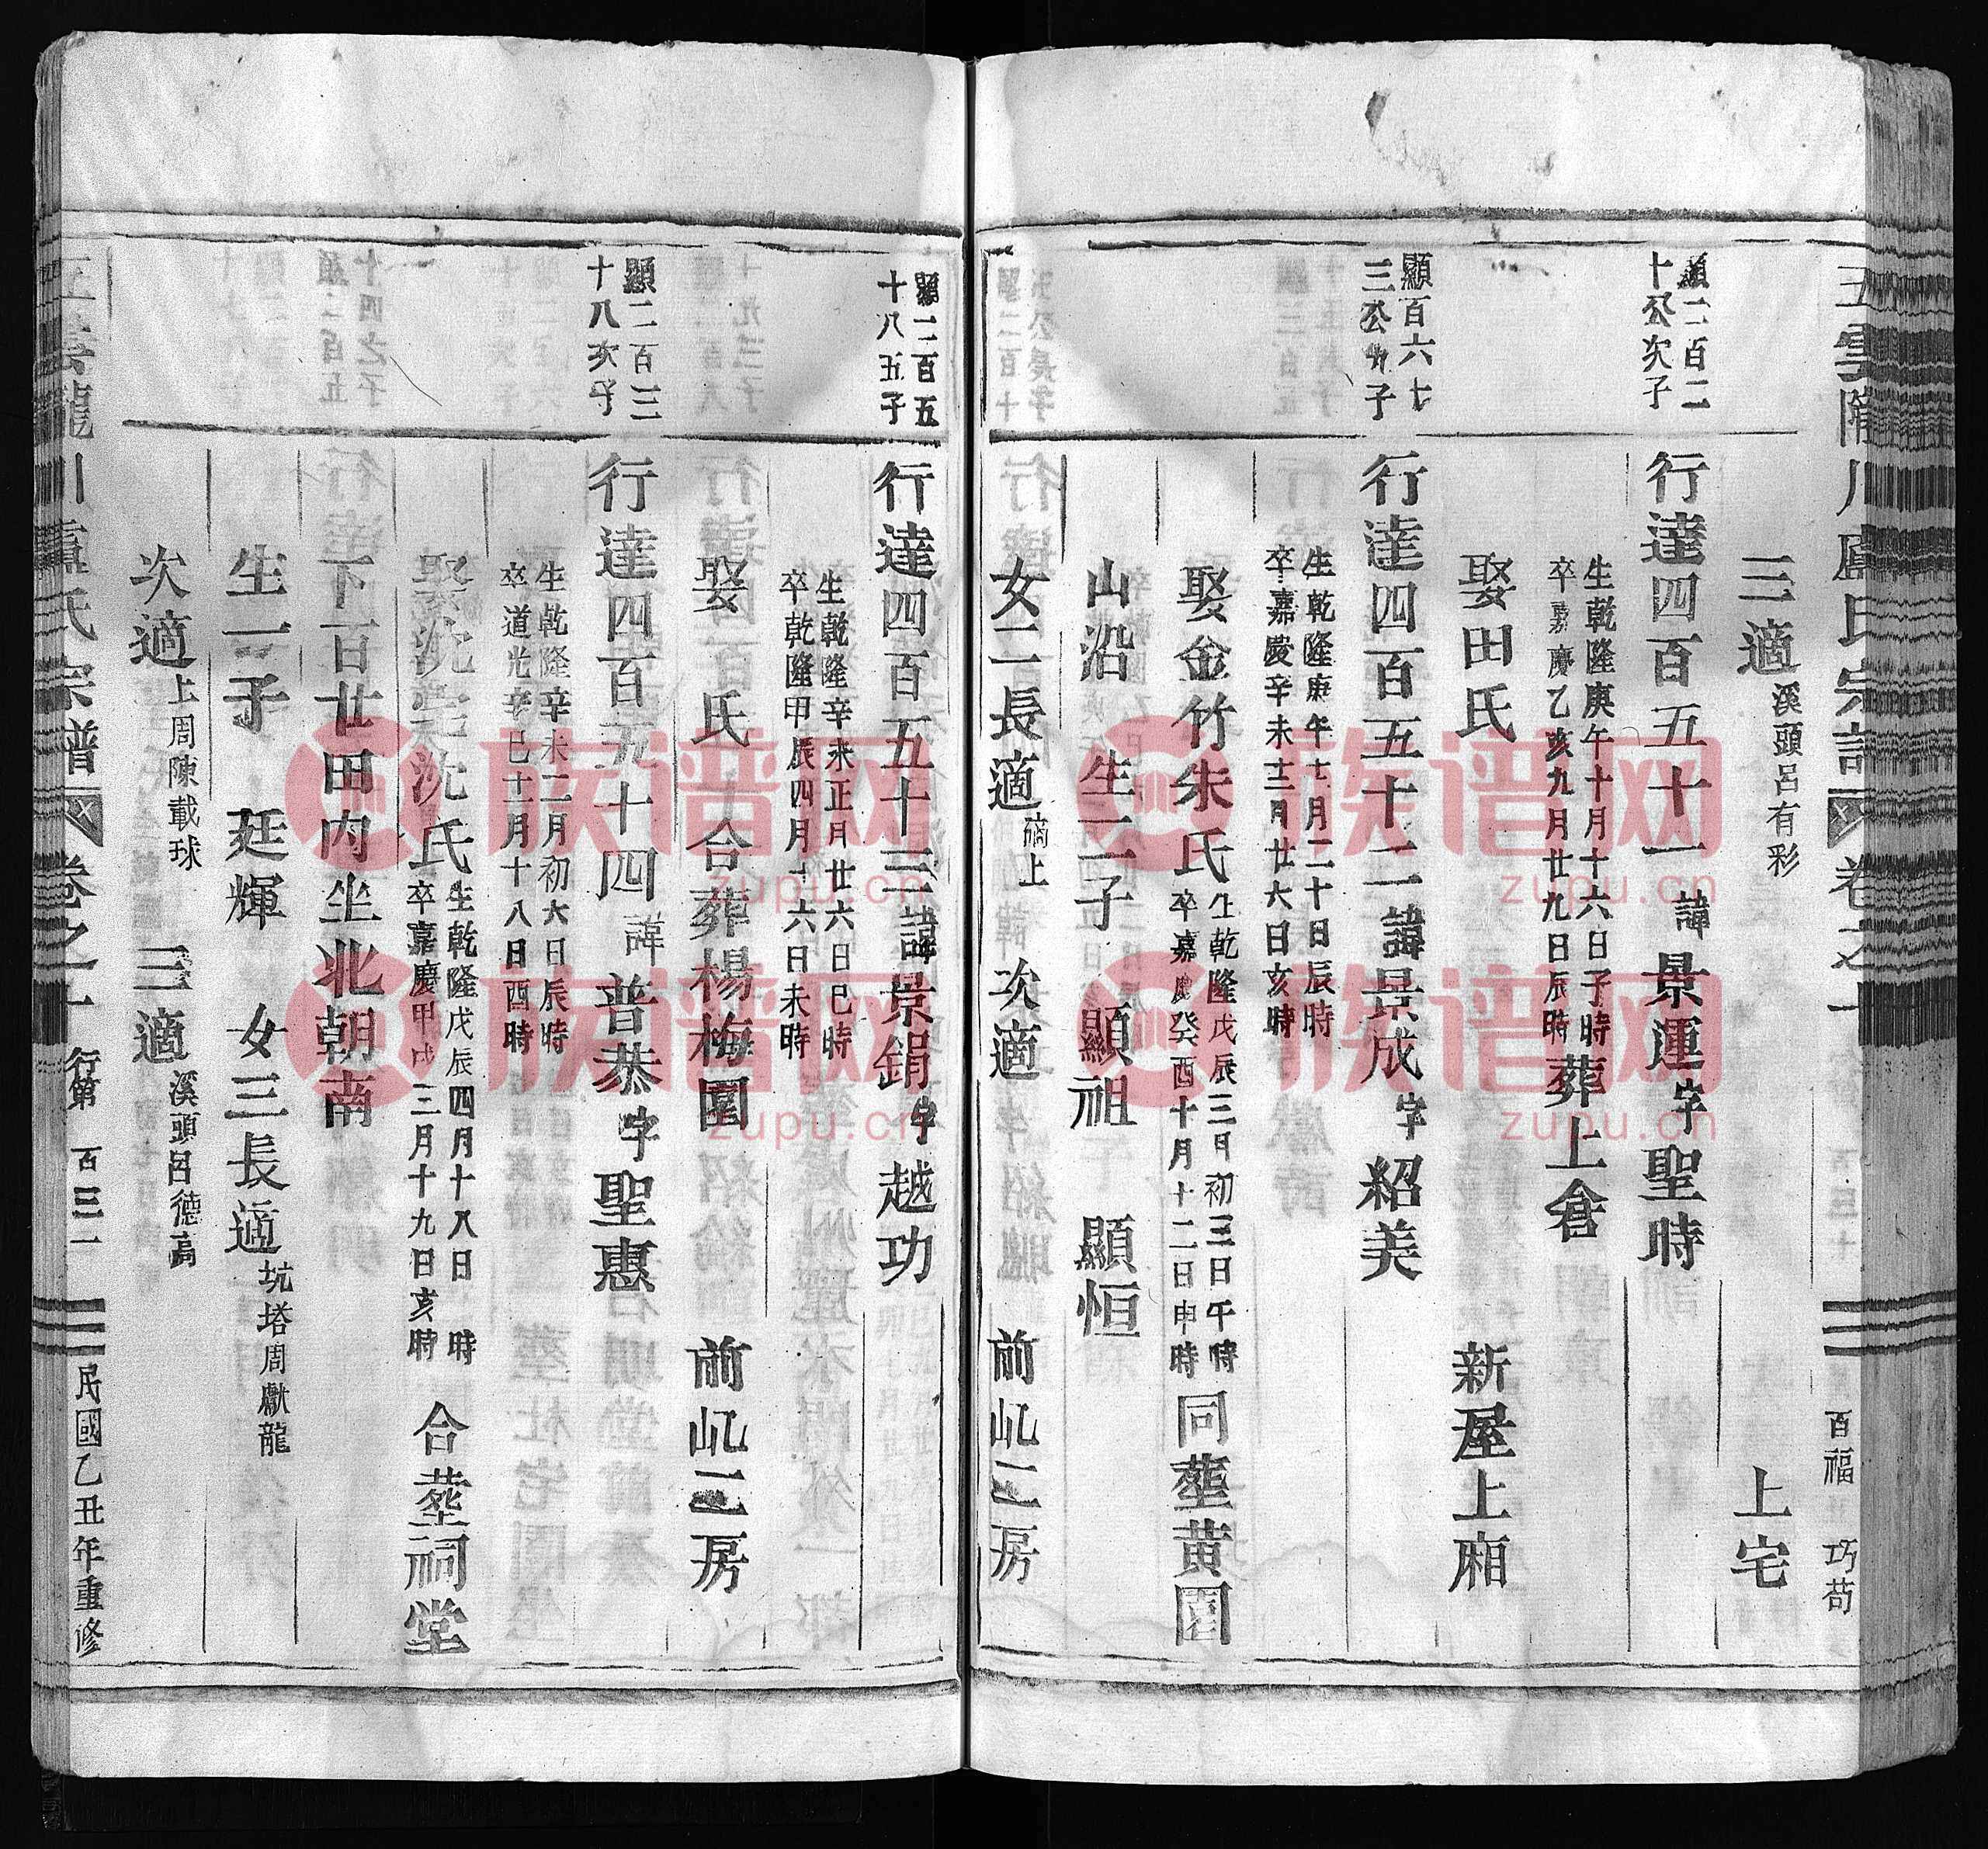 五雲隴川盧氏宗譜 卷之十 百福 巧苟
三適溪頭呂有彩 上宅
顯二百二十公次子
行達四百五十一 諱景運字聖時
生乾隆庚午十月十六日子時
卒嘉慶乙亥九月廿九日辰時 葬上倉
娶田氏 新屋上廂
顯百六七三公子
行達四百五十二諱景成字紹美
生乾隆庚午十二月二十日辰時
卒嘉慶辛未十二月廿六日亥時
娶金竹朱氏
生乾隆戊辰三月初三日午時
卒嘉慶癸酉十月十二日申時 同塟黄園
山沿 生二子 顯祖 顯恒
女二長適 上 次適 前屼二房
顯二百五十八五子
行達四百五十三諱景鋗字越功
生乾隆辛未正月廿六日巳時
卒乾隆甲辰四月十六日未時
娶 氏 合葬楊梅園 前屼二房
顯二百三十八次子
行達四百五十四 諱普恭字聖惠
生乾隆辛未二月初六日辰時
卒道光辛巳十一月十八日酉時
娶沈宅沈氏
生乾隆戊辰四月十八日 時
卒嘉慶甲戌三月十九日亥時 合塟祠堂
下百廿田内坐北朝南
生一子 廷輝 女三長適坑塔周獻龍
次適上周陳載球 三適溪頭呂德高
五雲隴川盧氏宗譜 卷之十 行第 百三一 民國乙丑年重修
族谱网
zupu.cn
族谱网
zupu.cn
族谱网
zupu.cn
族谱网
zupu.cn